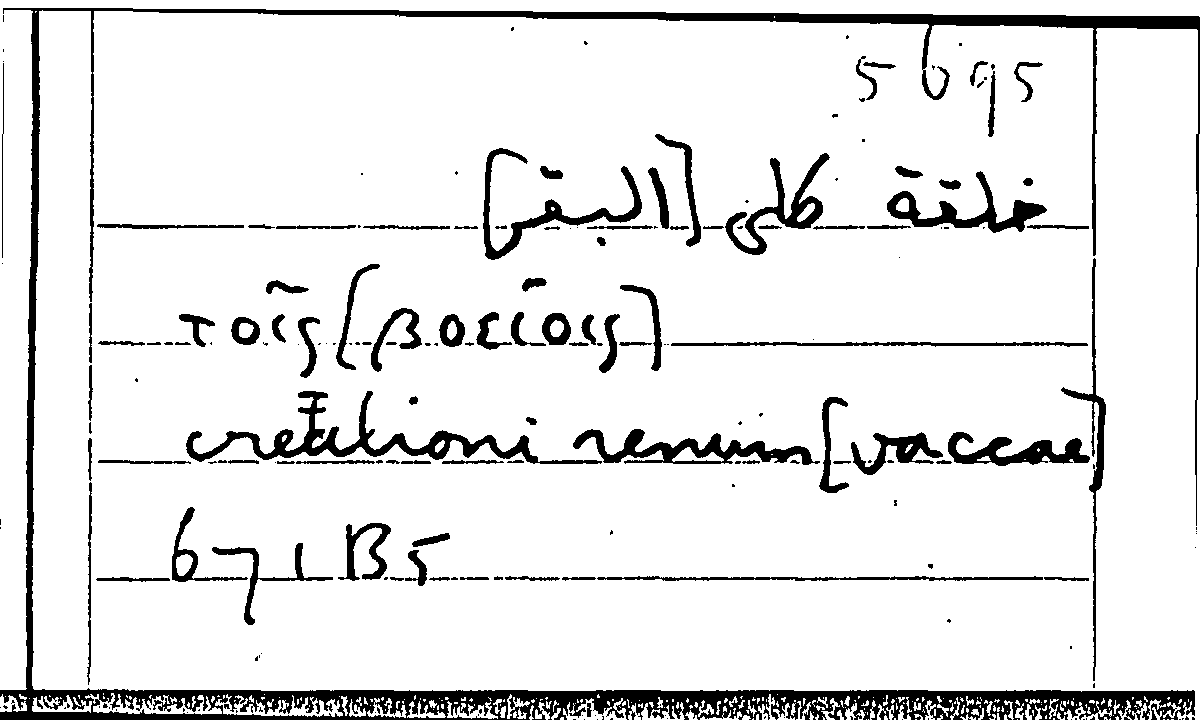 5695
خلقة كلى [البقر]
τοῖς [βοείοις]
creationi renum [vaccae]
671B5